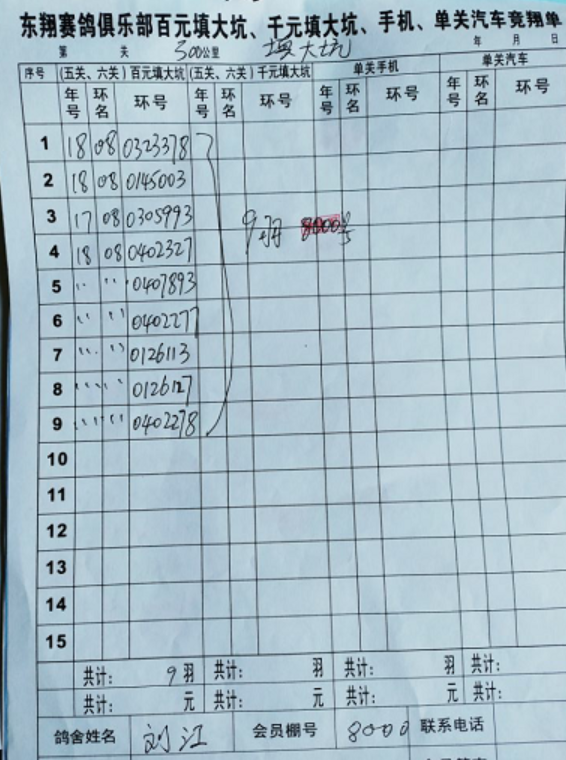 东翔赛鸽俱乐部百元填大坑、千元填大坑、手机、单关汽车竞翔单
第 关 500公里 填大坑 年 月 日
序号 (五关、六关)百元填大坑 (五关、六关)千元填大坑 单关手机 单关汽车
年号 环名 环号 年号 环名 环号 年号 环名 环号 年号 环名 环号
1 18 08 0323378
2 18 08 0145003
3 17 08 0305993 9羽 8000号
4 18 08 0402327
5 〃 〃 0407893
6 〃 〃 0402277
7 〃 〃 0126113
8 〃 〃 0126127
9 〃 〃 0402278
10
11
12
13
14
15
共计: 9羽 共计: 羽 共计: 羽 共计:
共计: 元 共计: 元 共计: 元 共计:
鸽舍姓名 刘江 会员棚号 8000 联系电话